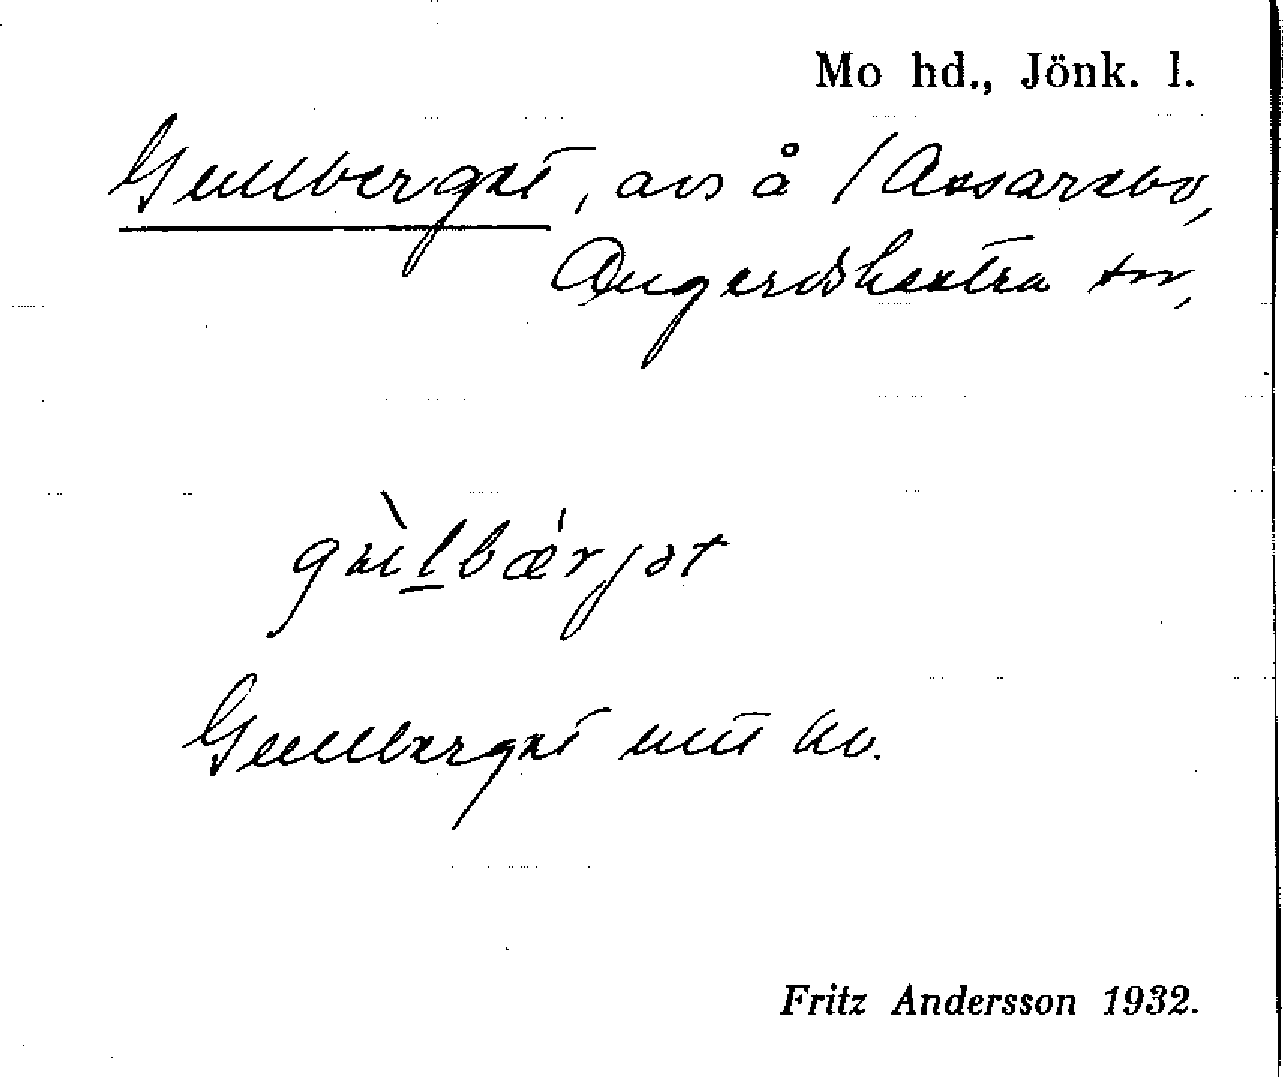 Mo hd., Jönk. l.
Gullberget, avs å / Assarebo,
Ångerdshestra sn,
gùlbǽrjət
Gullberget utt av.
Fritz Andersson 1932.